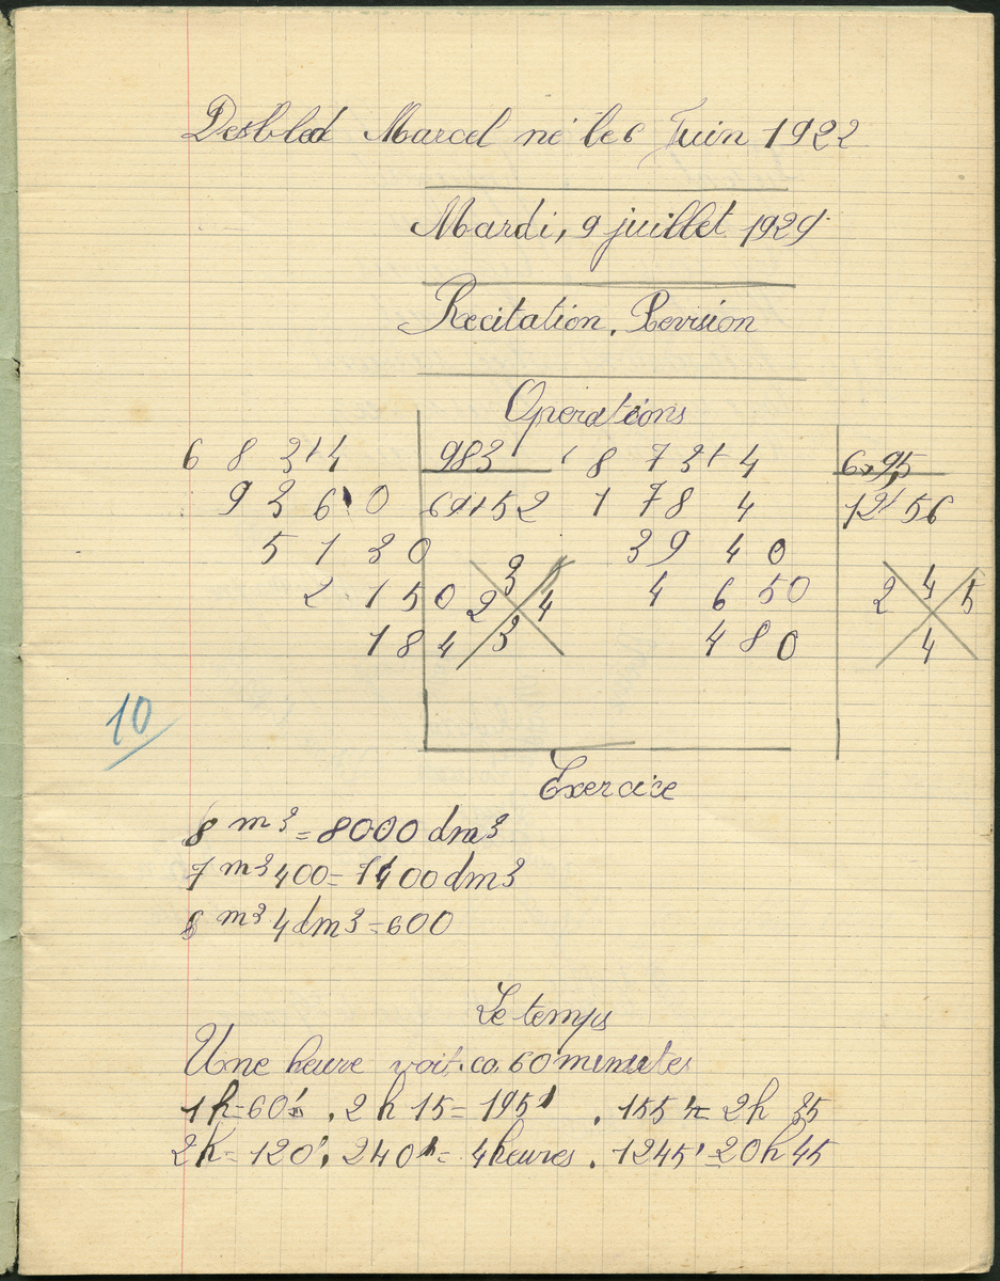 Desbled Marcel né le 6 Juin 1922
Mardi, 9 juillet 1929
Recitation, Revision
Operations
6 8 3 4 983 8 7 3 4 6,95
9 3 6 0 69 52 1 7 8 4 12 56
5 1 3 0 3 9 4 0
2 1 5 0 4 6 5 0
3 4
2 4 2 5
3 4
1 8 4 4 8 0
10
Exercice
8 m3 = 8000 dm3
7 m3 400 = 7400 dm3
m3 4 dm3 = 600
Le temps
Une heure voit ca 60 minutes
1 h = 60', 2 h 15 = 195', 155' = 2h 35
2h = 120', 240' = 4 heures, 1245' = 20 h 45